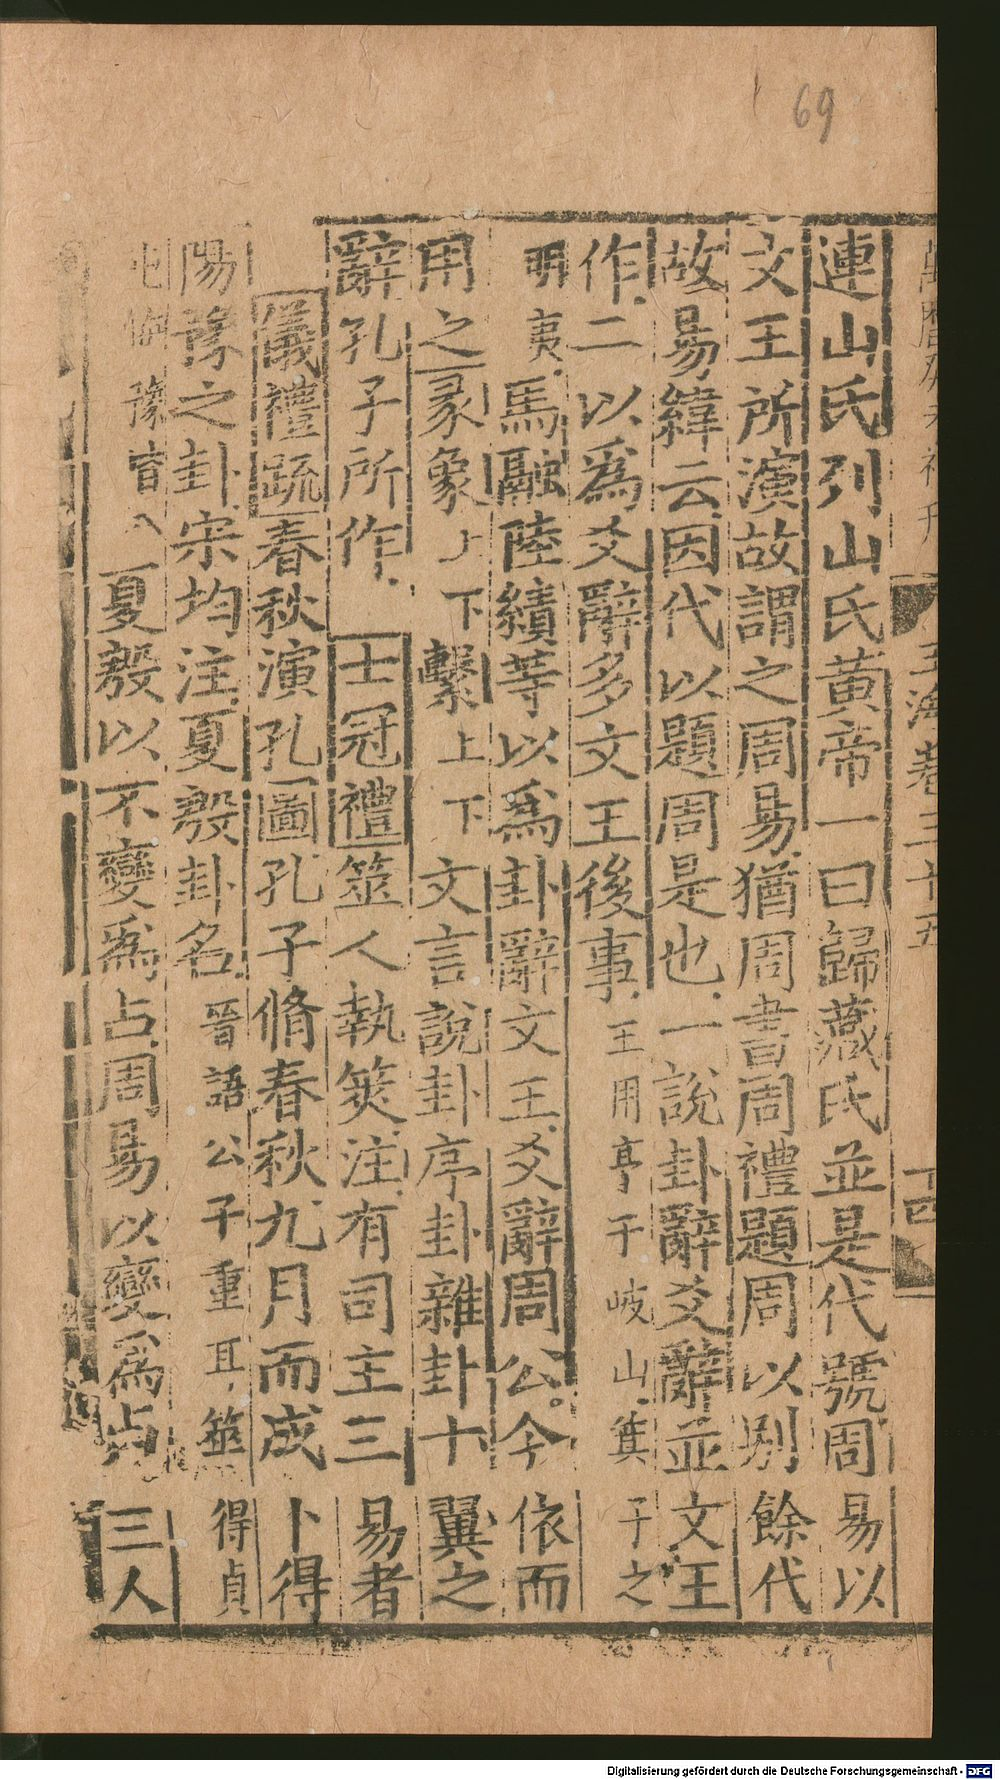 69
玉海卷三十五
十四
連山氏列山氏黃帝一曰歸藏氏並是代號周易以
文王所演故謂之周易猶周書周禮題周以別餘代
故易緯云因代以題周是也一說卦辭爻辭並文王
作二以為爻辭多文王後事王用亨于岐山箕子之
明夷馬融陸績等以為卦辭文王爻辭周公今依而
用之彖象上下繫上下文言說卦序卦雜卦十翼之
辭孔子所作 士冠禮筮人執筴注有司主三易者
儀禮疏春秋演孔圖孔子脩春秋九月而成卜得
陽豫之卦宋均注夏殷卦名晉語公子重耳筮得貞
屯悔豫皆八夏殷以不變為占周易以變為占三人
Digitalisierung gefördert durch die Deutsche Forschungsgemeinschaft - DFG